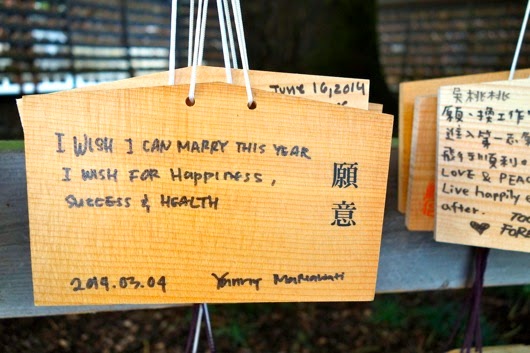 JUNE 16, 2014
I WISH I CAN MARRY THIS YEAR
I WISH FOR HAPPINESS,
SUCCESS & HEALTH
願意
2014.03.04
吳桃桃
願、換工作
進入第一志
順利
LOVE & PEAC
Live happily e
after. TO
FORE